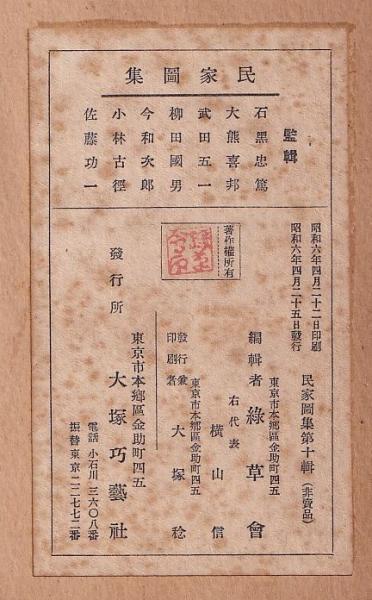 民家圖集
監輯
石黑忠篤
大熊喜邦
武田五一
柳田國男
今和次郎
小林古徑
佐藤功一
昭和六年四月二十二日印刷
昭和六年四月二十五日發行
民家圖集第十輯(非賣品)
著作權所有
東京市本鄕區金助町四五
編輯者 綠草會
右代表 橫山信
東京市本鄕區金助町四五
發行兼
印刷者 大塚稔
發行所
東京市本鄕區金助町四五
大塚巧藝社
電話 小石川 三六〇八番
振替東京二二七七二番